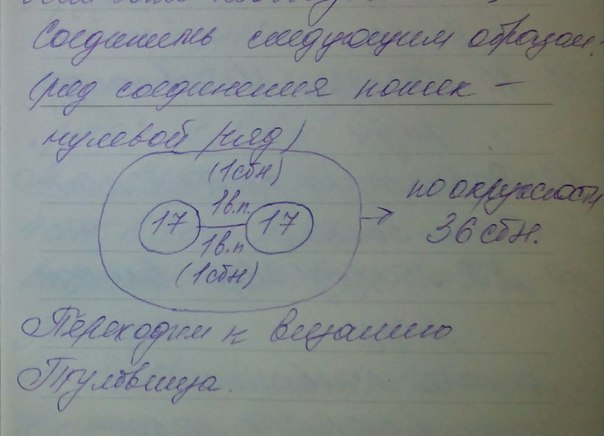 Соединить следующим образом:
(ряд соединения ножек -
нулевой ряд)
(1сбн)
1в.п.
17 17
1в.п
(1сбн)
по окружности
36 сбн.
Переходим к вязанию
Туловища.